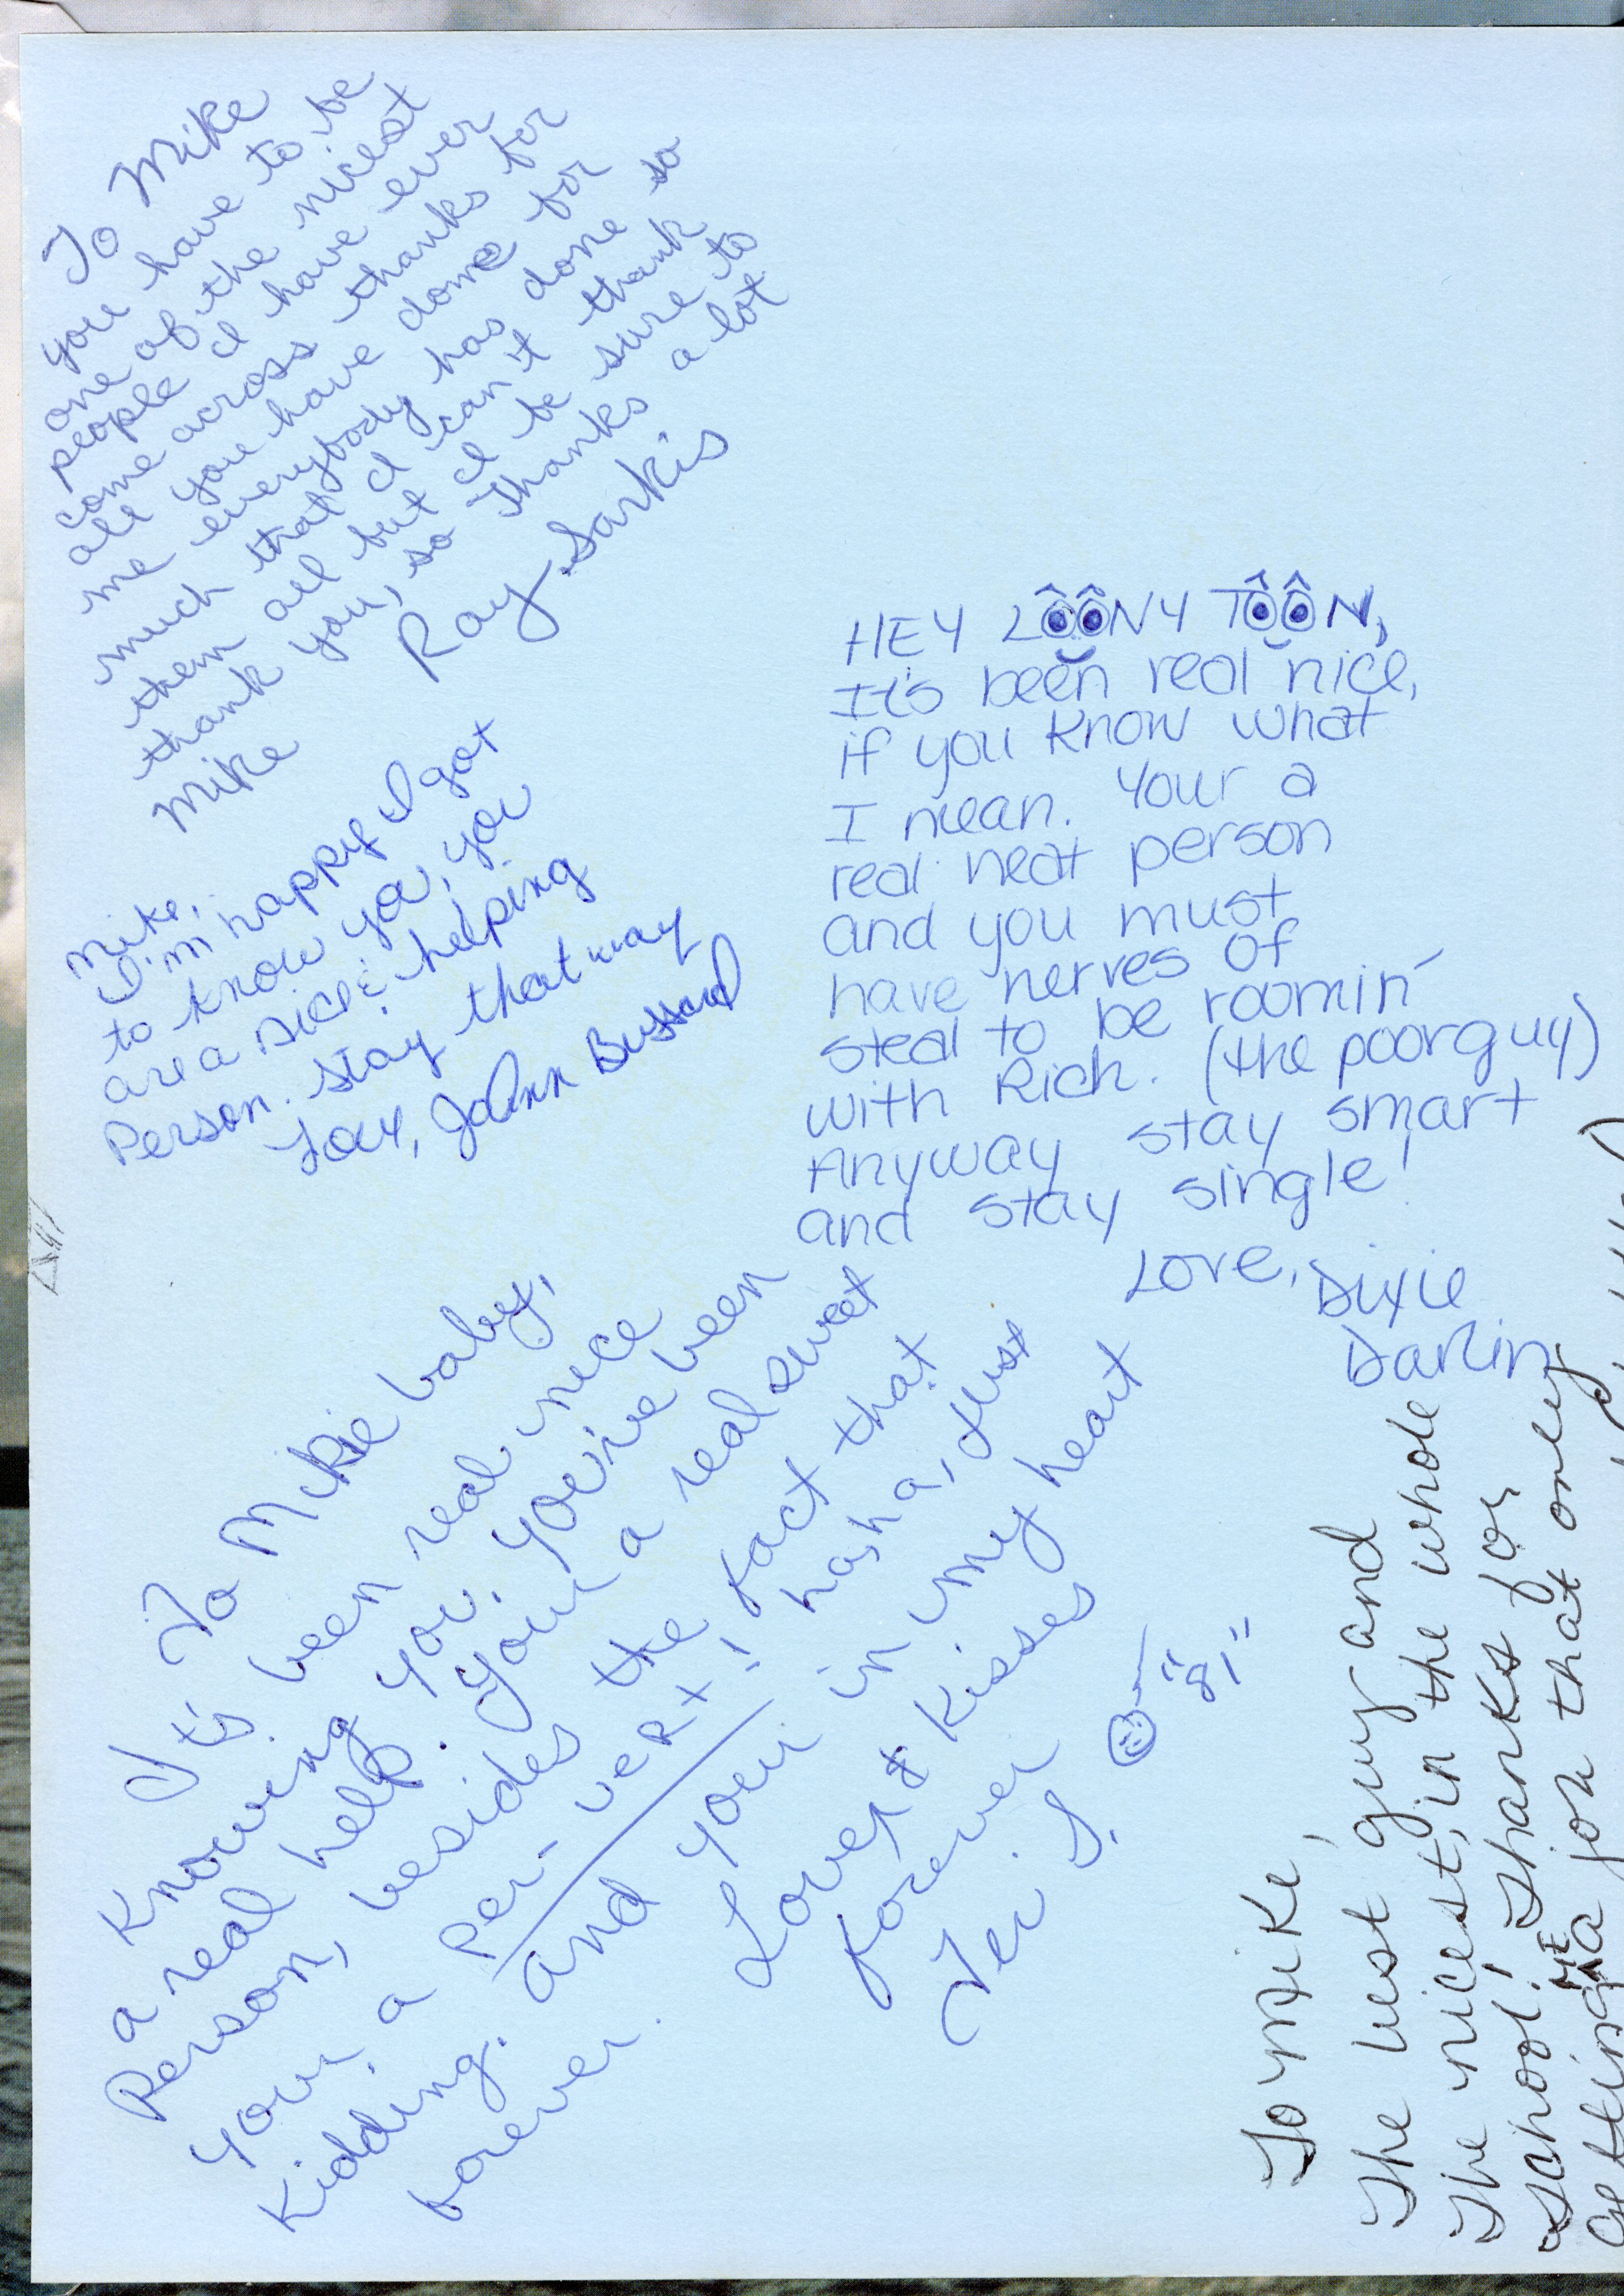 To Mike
you have to be
one of the nicest
people I have ever
come across thanks for
all you have done for
me everybody has done so
much that I can't thank
them all but I be sure to
thank you, so thanks a lot
Mike
Ray Sarkis
Mike,
I'm happy I got
to know ya, you
are a nice & helping
Person. Stay that way
Love, JoAnn Bussard
HEY LOONY TOON,
It's been real nice,
if you know what
I mean. Your a
real neat person
and you must
have nerves of
steal to be roomin'
with Rich. (the poor guy)
Anyway stay smart
and stay single!
Love, Dixie
Darlin
To Mikie baby,
It's been real nice
Knowing you. You've been
a real help. Your a real sweet
Person, besides the fact that
your a per-vert! ha, ha, Just
Kidding. and your in my heart
forever.
Love & Kisses
forever
Jer J.
To Mike,
The best guy and
The nicest, in the whole
School! Thanks for
getting ME a job that only